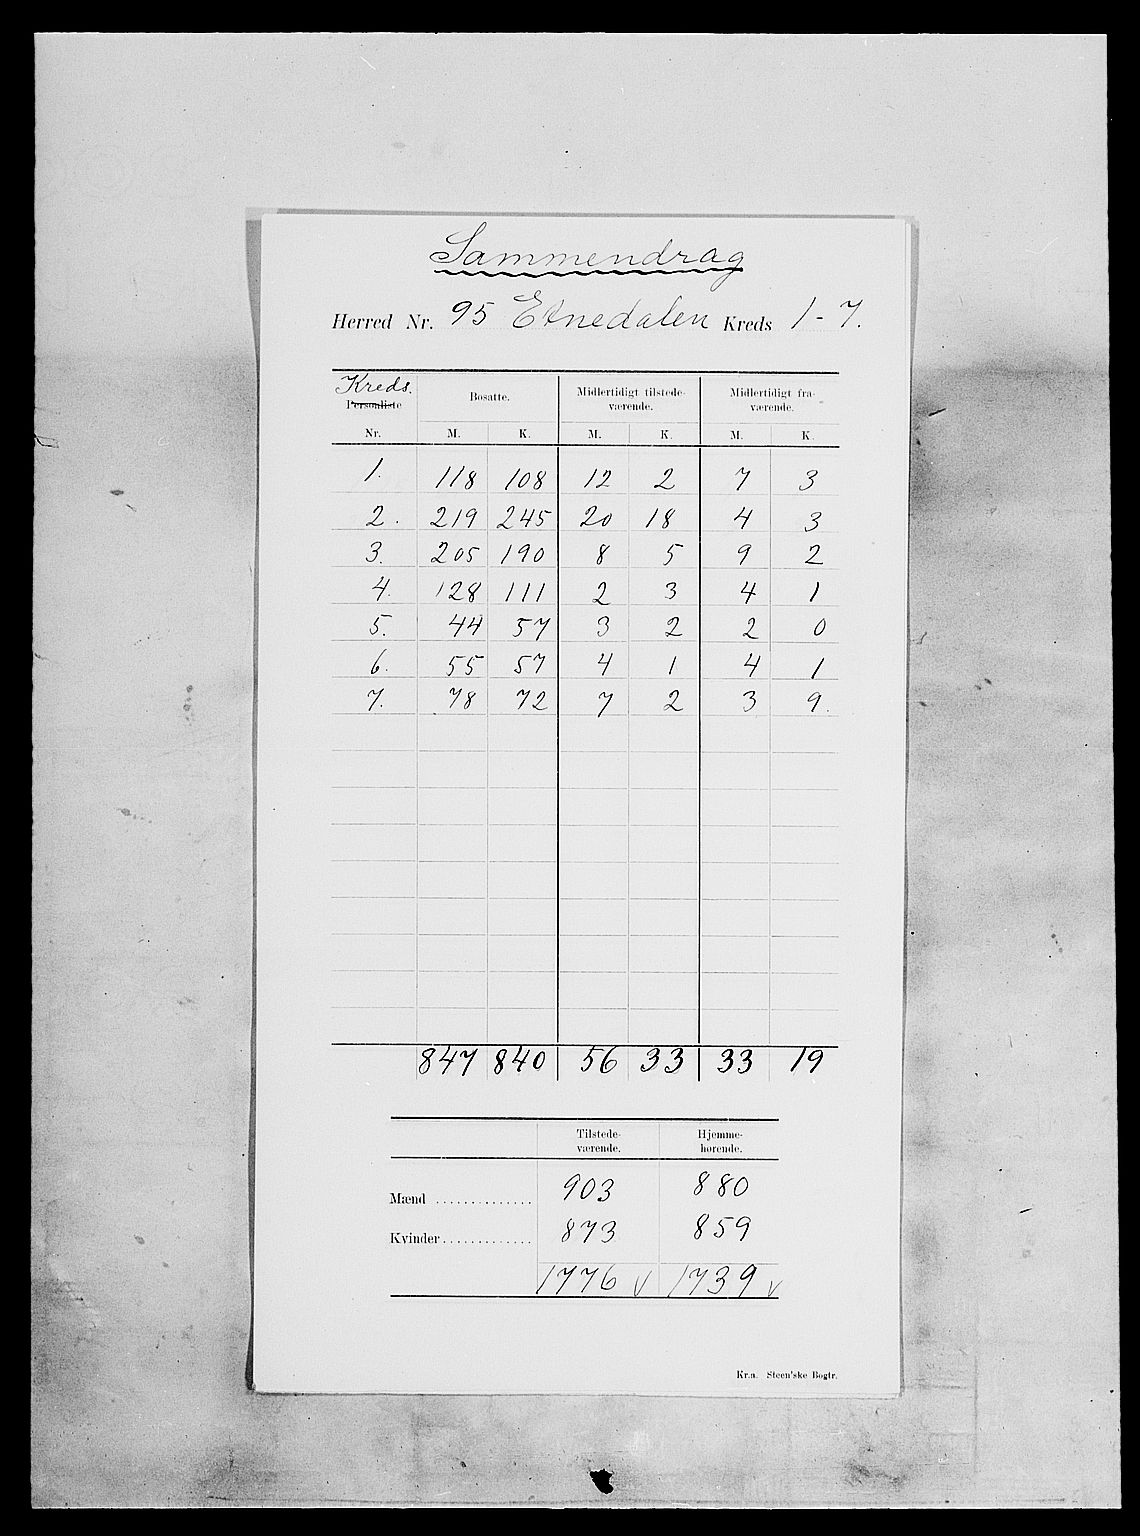 Sammendrag
Herred Nr. 95 Etnedalen Kreds 1-7.
Kreds.
Personliste Bosatte. Midlertidigt tilstede- Midlertidigt fra-
værende. værende.
Nr. M. K. M. K. M. K.
1. 118 108 12 2 7 3
2. 219 245 20 18 4 3
3. 205 190 8 5 9 2
4. 128 111 2 3 4 1
5. 44 57 3 2 2 0
6. 55 57 4 1 4 1
7. 78 72 7 2 3 9.
847 840 56 33 33 19
Tilstede- Hjemme-
værende. hørende.
Mænd .............. 903 880
Kvinder ............. 873 859
1776 v 1739 v
Kr.a. Steen'ske Bogtr.